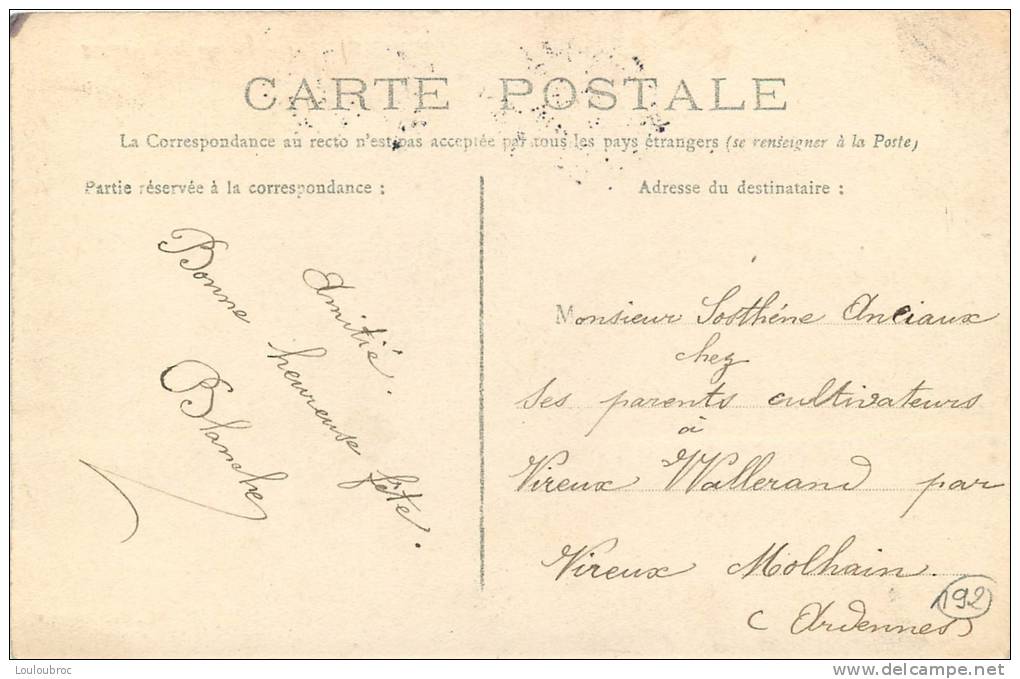 CARTE POSTALE
La Correspondance au recto n'est pas acceptée par tous les pays étrangers (se renseigner à la Poste)
Partie réservée à la correspondance :
Amitié.
Bonne heureuse fête.
Blanche
Adresse du destinataire :
Monsieur Sosthéne Anciaux
chez
ses parents cultivateurs
à
Vireux Wallerand par
Vireux Molhain.
(Ardennes)
192
Louloubroc
www.delcampe.net